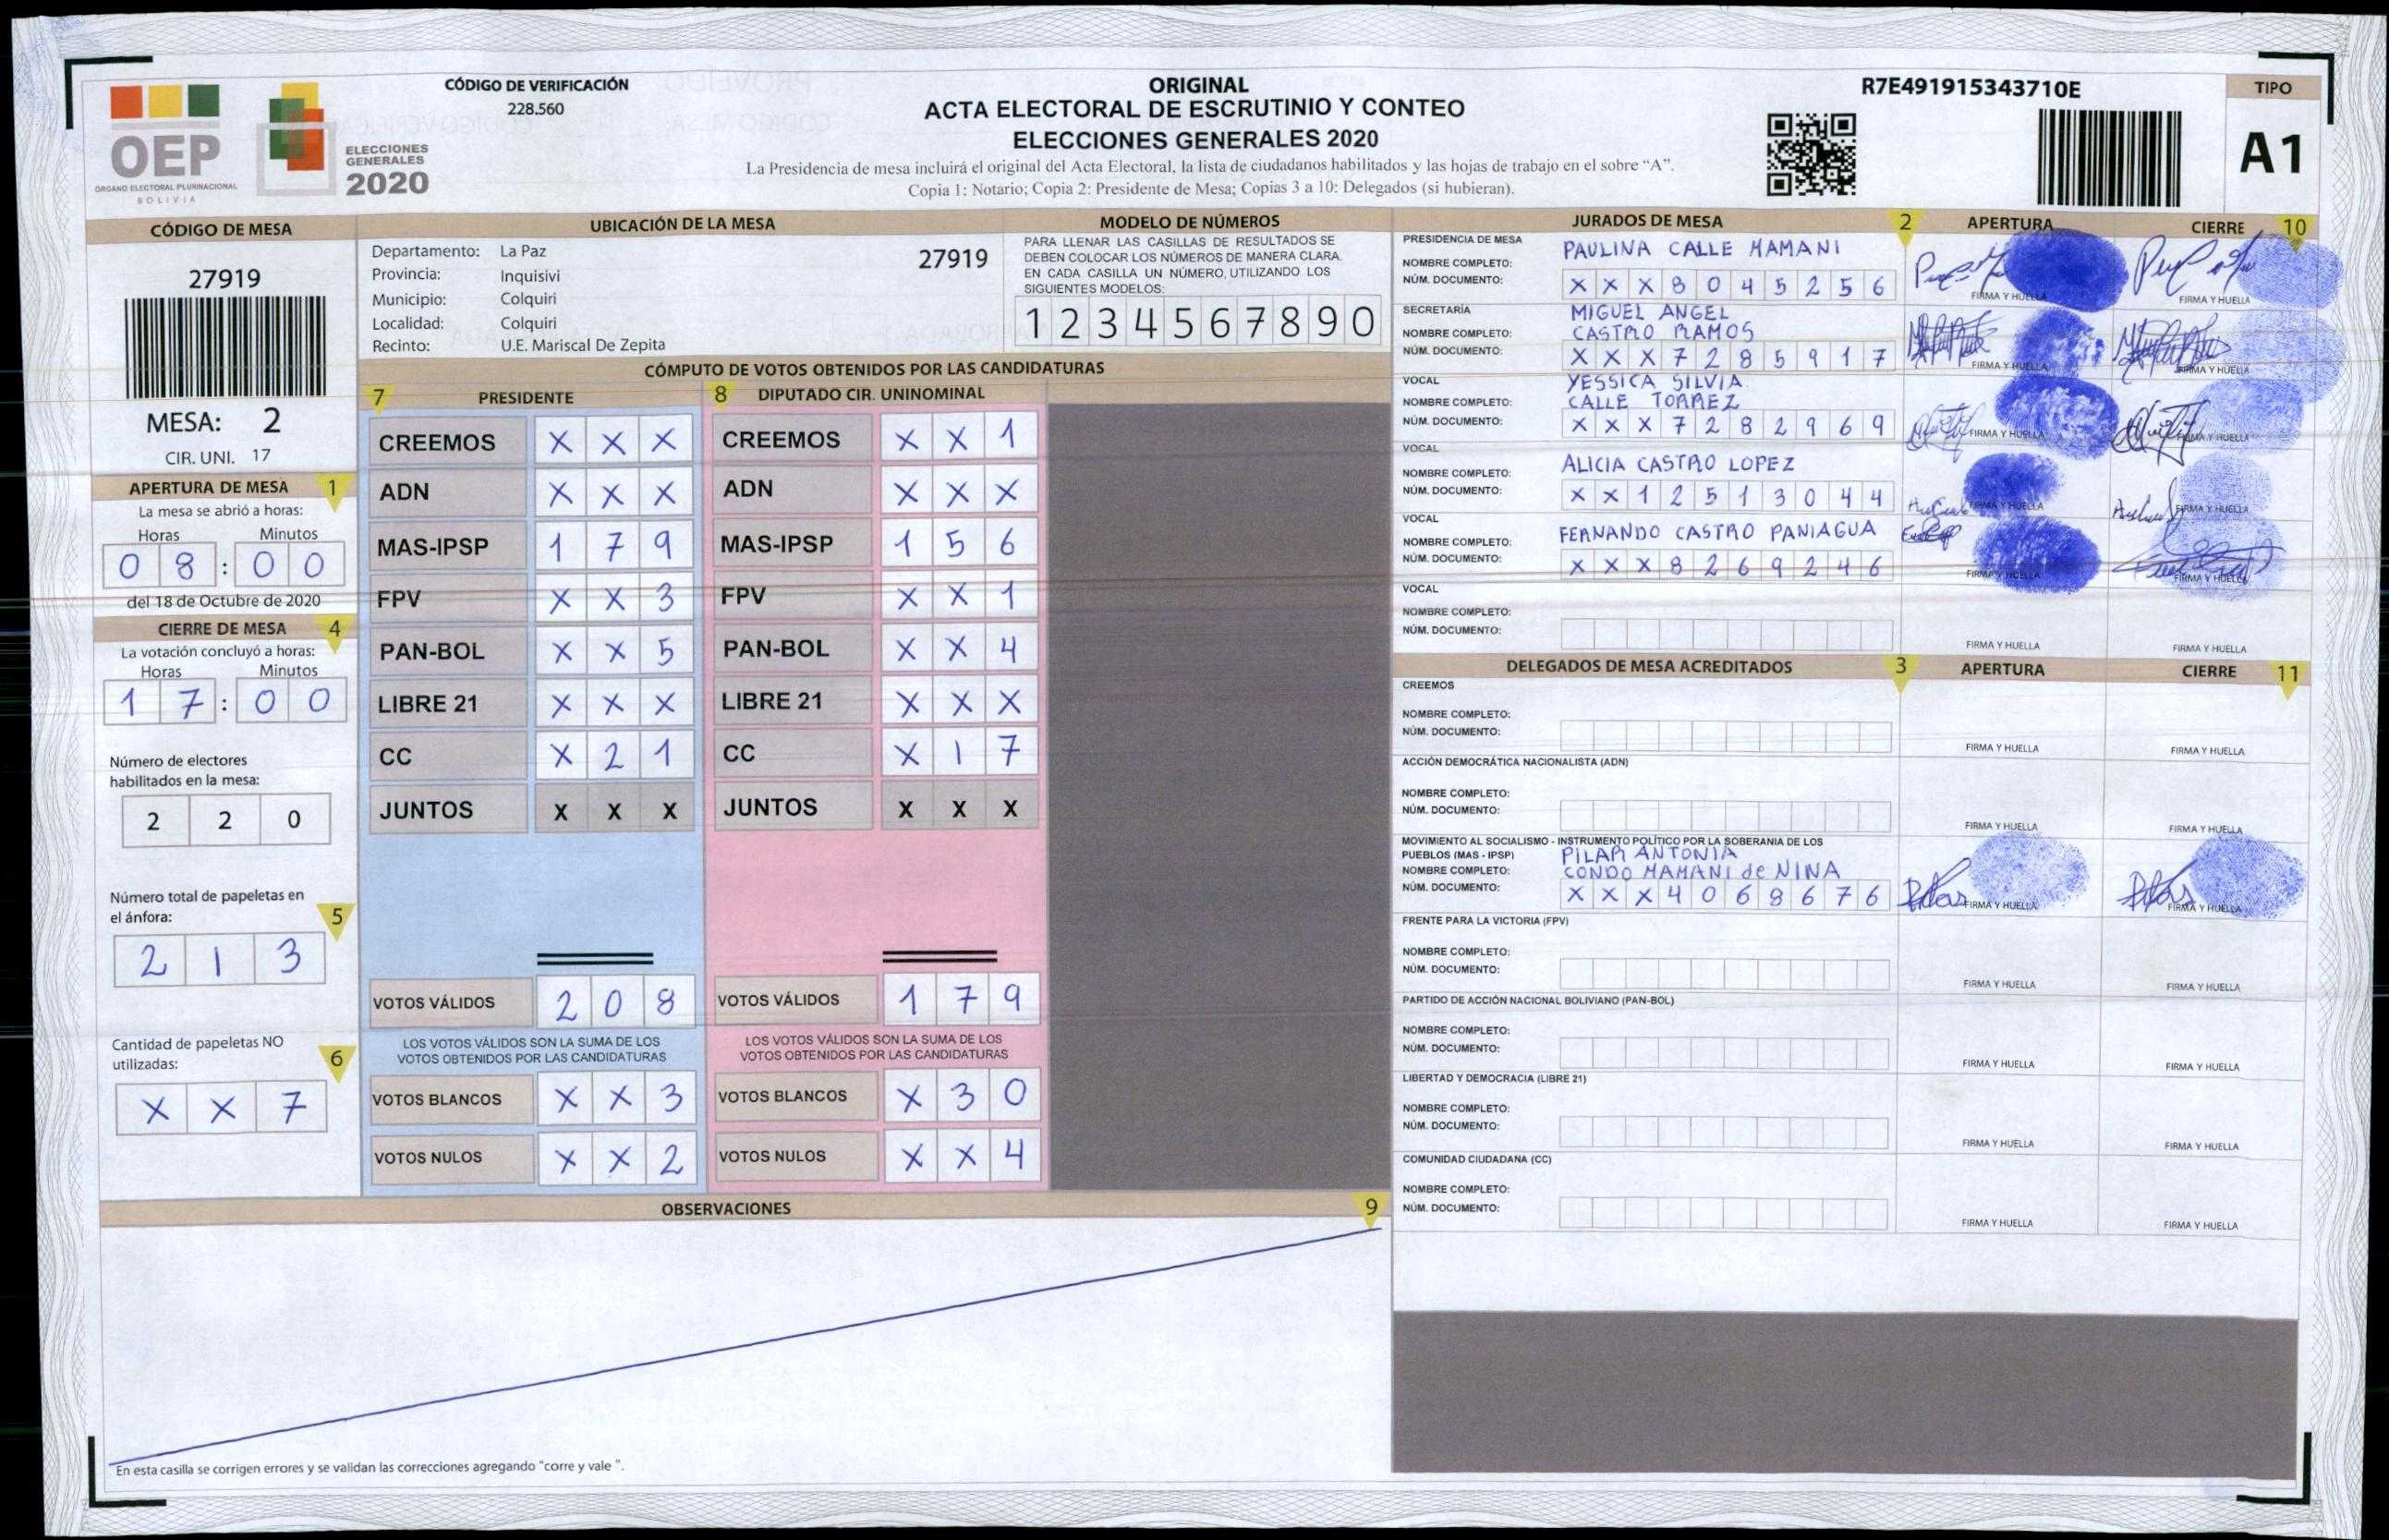 CÓDIGO DE VERIFICACIÓN
228.560
OEP
ÓRGANO ELECTORAL PLURINACIONAL
BOLIVIA
ELECCIONES
GENERALES
2020
ORIGINAL
ACTA ELECTORAL DE ESCRUTINIO Y CONTEO
ELECCIONES GENERALES 2020
La Presidencia de mesa incluirá el original del Acta Electoral, la lista de ciudadanos habilitados y las hojas de trabajo en el sobre “A”.
Copia 1: Notario; Copia 2: Presidente de Mesa; Copias 3 a 10: Delegados (si hubieran).
R7E491915343710E
TIPO
A1
CÓDIGO DE MESA
27919
MESA: 2
CIR. UNI. 17
APERTURA DE MESA 1
La mesa se abrió a horas:
Horas Minutos
0 8 : 0 0
del 18 de Octubre de 2020
CIERRE DE MESA 4
La votación concluyó a horas:
Horas Minutos
1 7 : 0 0
Número de electores
habilitados en la mesa:
2 2 0
Número total de papeletas en
el ánfora: 5
2 1 3
Cantidad de papeletas NO
utilizadas: 6
X X 7
UBICACIÓN DE LA MESA
Departamento: La Paz
27919
Provincia: Inquisivi
Municipio: Colquiri
Localidad: Colquiri
Recinto: U.E. Mariscal De Zepita
MODELO DE NÚMEROS
PARA LLENAR LAS CASILLAS DE RESULTADOS SE
DEBEN COLOCAR LOS NÚMEROS DE MANERA CLARA.
EN CADA CASILLA UN NÚMERO, UTILIZANDO LOS
SIGUIENTES MODELOS:
1 2 3 4 5 6 7 8 9 0
CÓMPUTO DE VOTOS OBTENIDOS POR LAS CANDIDATURAS
7 PRESIDENTE
CREEMOS X X X
ADN X X X
MAS-IPSP 1 7 9
FPV X X 3
PAN-BOL X X 5
LIBRE 21 X X X
CC X 2 1
JUNTOS X X X
VOTOS VÁLIDOS 2 0 8
LOS VOTOS VÁLIDOS SON LA SUMA DE LOS
VOTOS OBTENIDOS POR LAS CANDIDATURAS
VOTOS BLANCOS X X 3
VOTOS NULOS X X 2
8 DIPUTADO CIR. UNINOMINAL
CREEMOS X X 1
ADN X X X
MAS-IPSP 1 5 6
FPV X X 1
PAN-BOL X X 4
LIBRE 21 X X X
CC X 1 7
JUNTOS X X X
VOTOS VÁLIDOS 1 7 9
LOS VOTOS VÁLIDOS SON LA SUMA DE LOS
VOTOS OBTENIDOS POR LAS CANDIDATURAS
VOTOS BLANCOS X 3 0
VOTOS NULOS X X 4
OBSERVACIONES 9
En esta casilla se corrigen errores y se validan las correcciones agregando “corre y vale ”.
JURADOS DE MESA 2 APERTURA CIERRE 10
PRESIDENCIA DE MESA
NOMBRE COMPLETO: PAULINA CALLE MAMANI
NÚM. DOCUMENTO: X X X 8 0 4 5 2 5 6
FIRMA Y HUELLA FIRMA Y HUELLA
SECRETARÍA MIGUEL ANGEL
NOMBRE COMPLETO: CASTRO RAMOS
NÚM. DOCUMENTO: X X X 7 2 8 5 9 1 7
FIRMA Y HUELLA FIRMA Y HUELLA
VOCAL YESSICA SILVIA
NOMBRE COMPLETO: CALLE TORREZ
NÚM. DOCUMENTO: X X X 7 2 8 2 9 6 9
FIRMA Y HUELLA FIRMA Y HUELLA
VOCAL
NOMBRE COMPLETO: ALICIA CASTRO LOPEZ
NÚM. DOCUMENTO: X X 1 2 5 1 3 0 4 4
FIRMA Y HUELLA FIRMA Y HUELLA
VOCAL
NOMBRE COMPLETO: FERNANDO CASTRO PANIAGUA
NÚM. DOCUMENTO: X X X 8 2 6 9 2 4 6
FIRMA Y HUELLA FIRMA Y HUELLA
VOCAL
NOMBRE COMPLETO:
NÚM. DOCUMENTO:
FIRMA Y HUELLA FIRMA Y HUELLA
DELEGADOS DE MESA ACREDITADOS 3 APERTURA CIERRE 11
CREEMOS
NOMBRE COMPLETO:
NÚM. DOCUMENTO:
FIRMA Y HUELLA FIRMA Y HUELLA
ACCIÓN DEMOCRÁTICA NACIONALISTA (ADN)
NOMBRE COMPLETO:
NÚM. DOCUMENTO:
FIRMA Y HUELLA FIRMA Y HUELLA
MOVIMIENTO AL SOCIALISMO - INSTRUMENTO POLÍTICO POR LA SOBERANIA DE LOS
PUEBLOS (MAS - IPSP) PILAR ANTONIA
NOMBRE COMPLETO: CONDO MAMANI de NINA
NÚM. DOCUMENTO: X X X 4 0 6 8 6 7 6
FIRMA Y HUELLA FIRMA Y HUELLA
FRENTE PARA LA VICTORIA (FPV)
NOMBRE COMPLETO:
NÚM. DOCUMENTO:
FIRMA Y HUELLA FIRMA Y HUELLA
PARTIDO DE ACCIÓN NACIONAL BOLIVIANO (PAN-BOL)
NOMBRE COMPLETO:
NÚM. DOCUMENTO:
FIRMA Y HUELLA FIRMA Y HUELLA
LIBERTAD Y DEMOCRACIA (LIBRE 21)
NOMBRE COMPLETO:
NÚM. DOCUMENTO:
FIRMA Y HUELLA FIRMA Y HUELLA
COMUNIDAD CIUDADANA (CC)
NOMBRE COMPLETO:
NÚM. DOCUMENTO:
FIRMA Y HUELLA FIRMA Y HUELLA